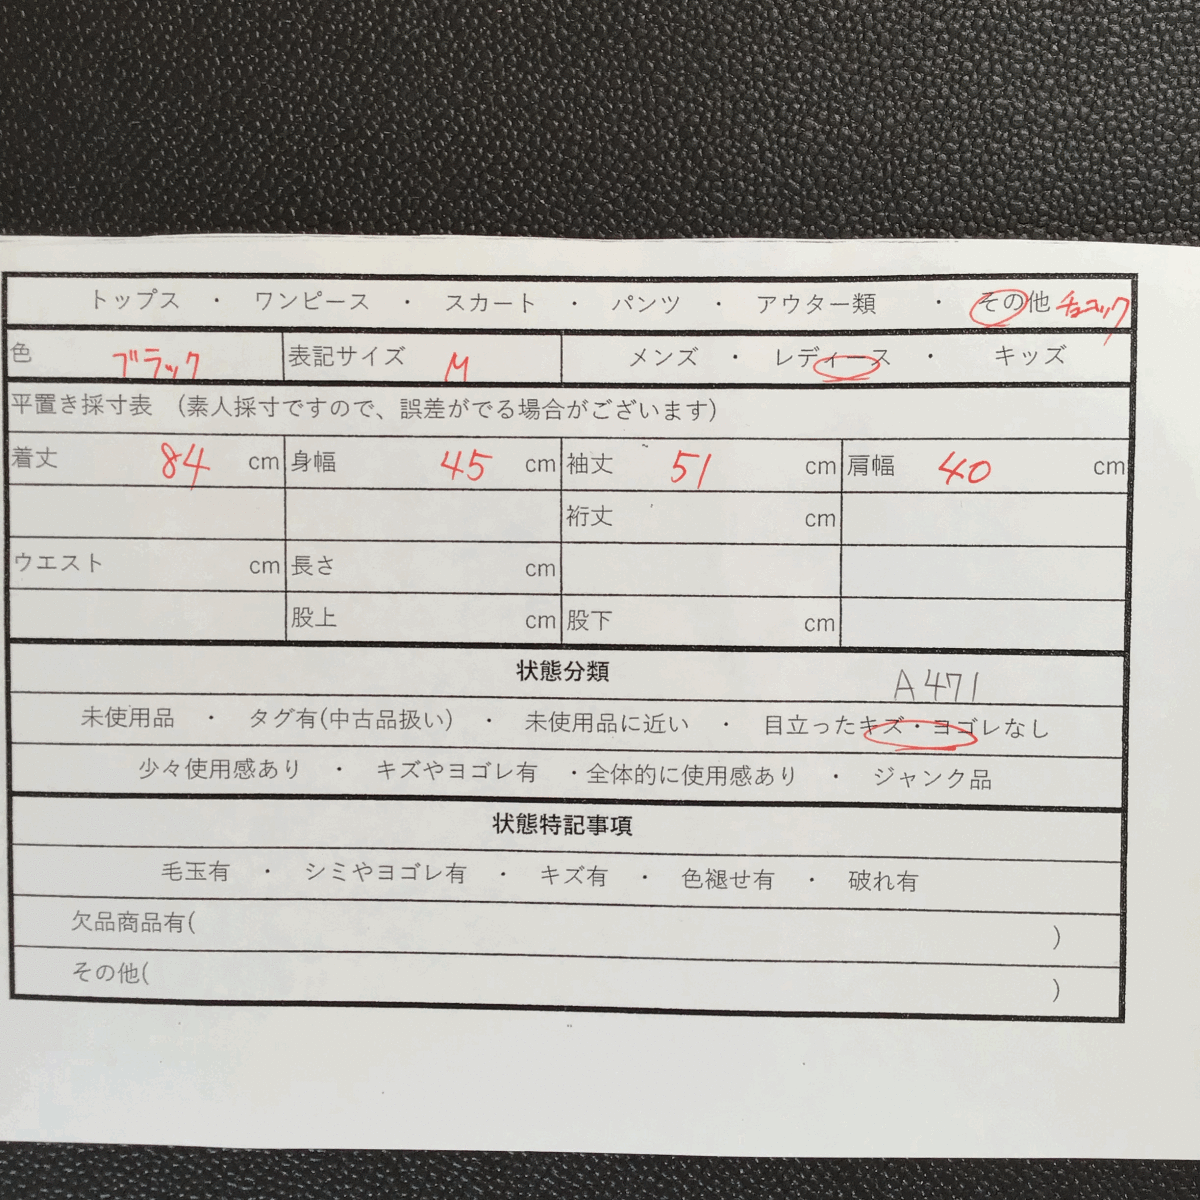 トップス ・ ワンピース ・ スカート ・ パンツ ・ アウター類 ・ その他 チュニック
色 ブラック 表記サイズ M メンズ ・ レディース ・ キッズ
平置き採寸表 （素人採寸ですので、誤差がでる場合がございます）
着丈 84 cm 身幅 45 cm 袖丈 51 cm 肩幅 40 cm
裄丈 cm
ウエスト cm 長さ cm
股上 cm 股下 cm
状態分類 A471
未使用品 ・ タグ有(中古品扱い) ・ 未使用品に近い ・ 目立ったキズ・ヨゴレなし
少々使用感あり ・ キズやヨゴレ有 ・全体的に使用感あり ・ ジャンク品
状態特記事項
毛玉有 ・ シミやヨゴレ有 ・ キズ有 ・ 色褪せ有 ・ 破れ有
欠品商品有( )
その他( )